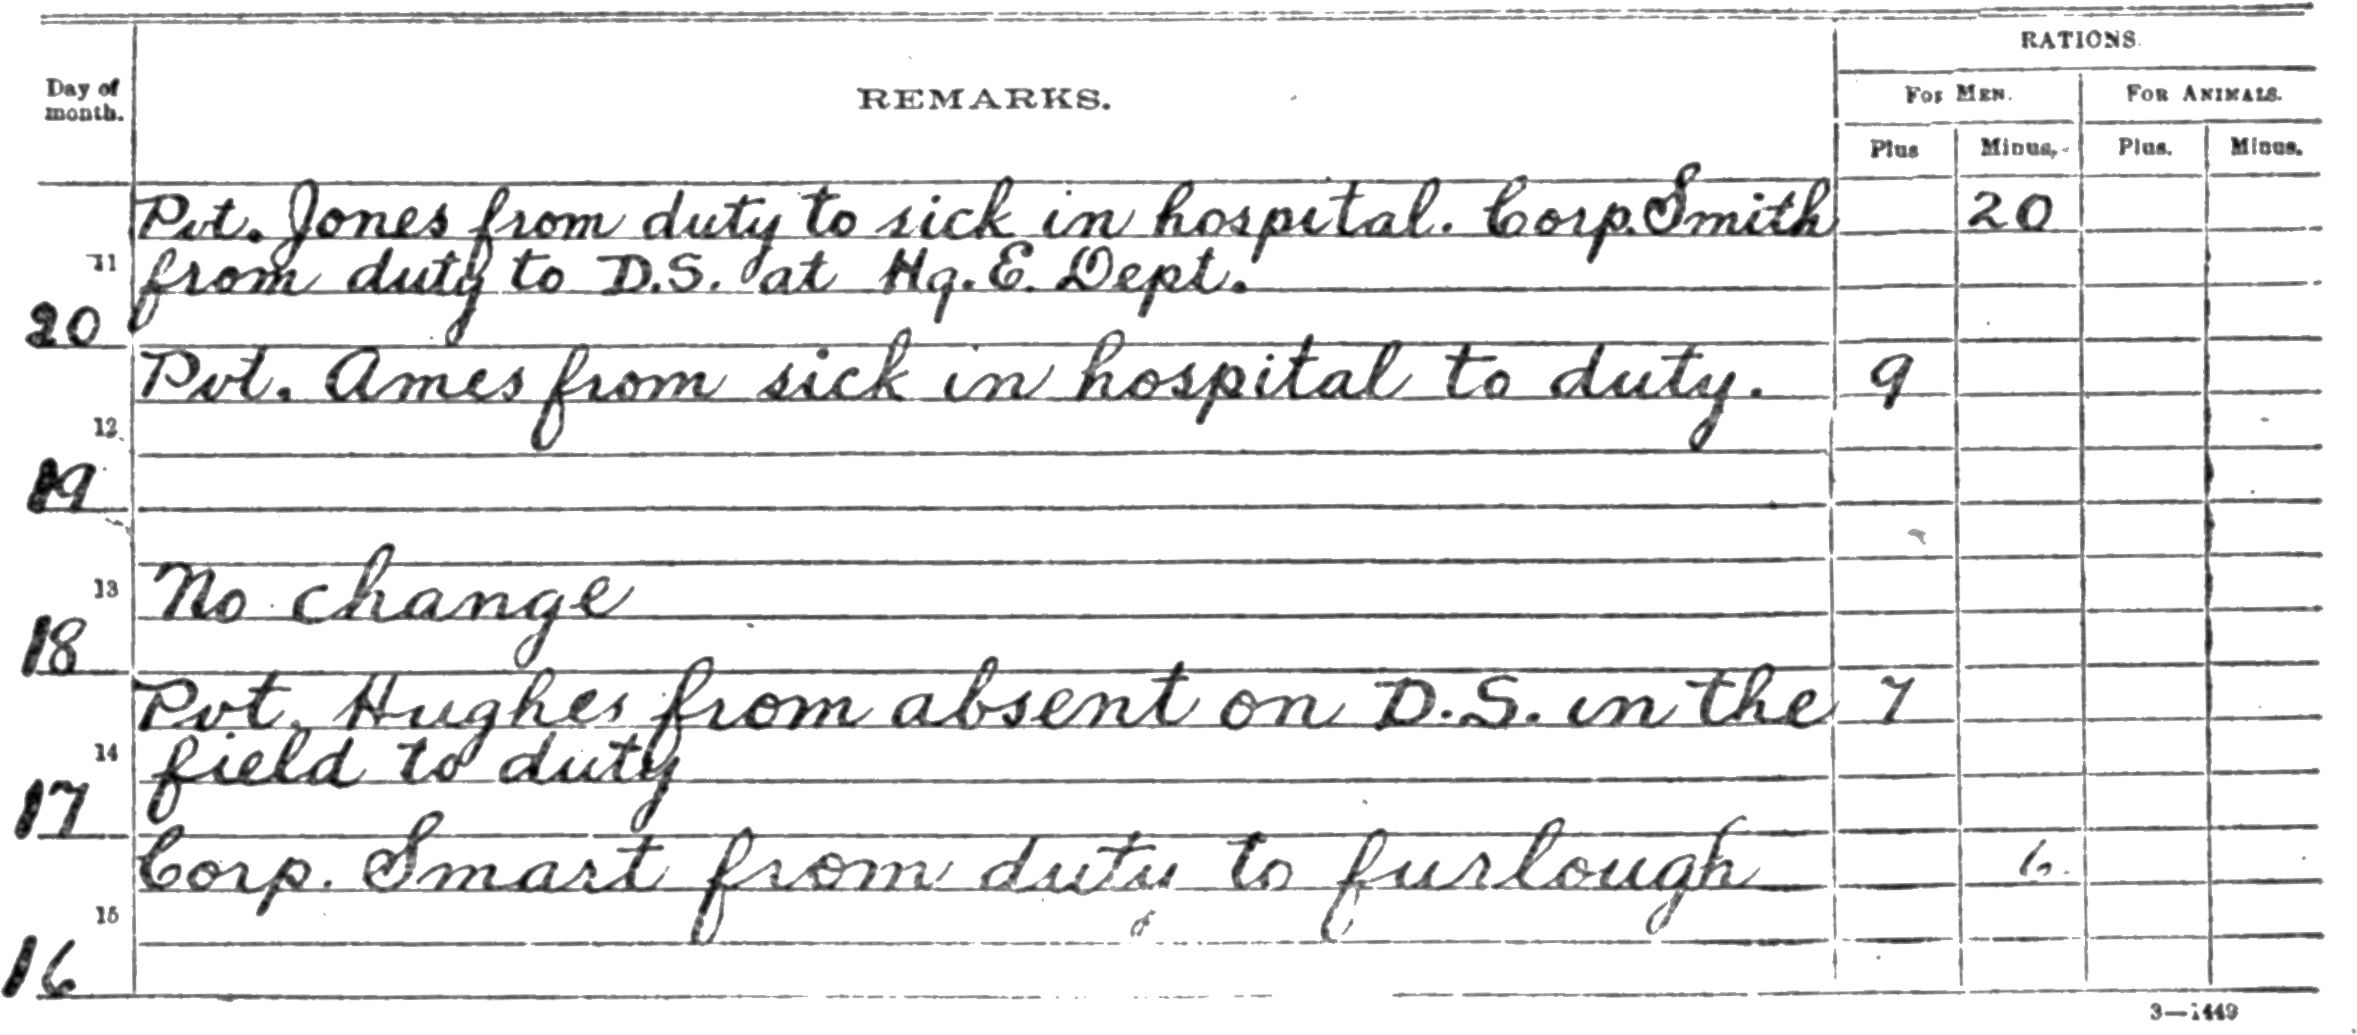 RATIONS.
Day of
month.
REMARKS.
For Men.
For Animals.
Plus
Minus.
Plus.
Minus.
Pvt. Jones from duty to sick in hospital. Corp. Smith 20
11 from duty to D.S. at Hq. E. Dept.
20
Pvt. Ames from sick in hospital to duty. 9
12
19
13 No change
18
Pvt. Hughes from absent on D.S. in the 7
14 field to duty
17
Corp. Smart from duty to furlough 6
15
16
3—1449